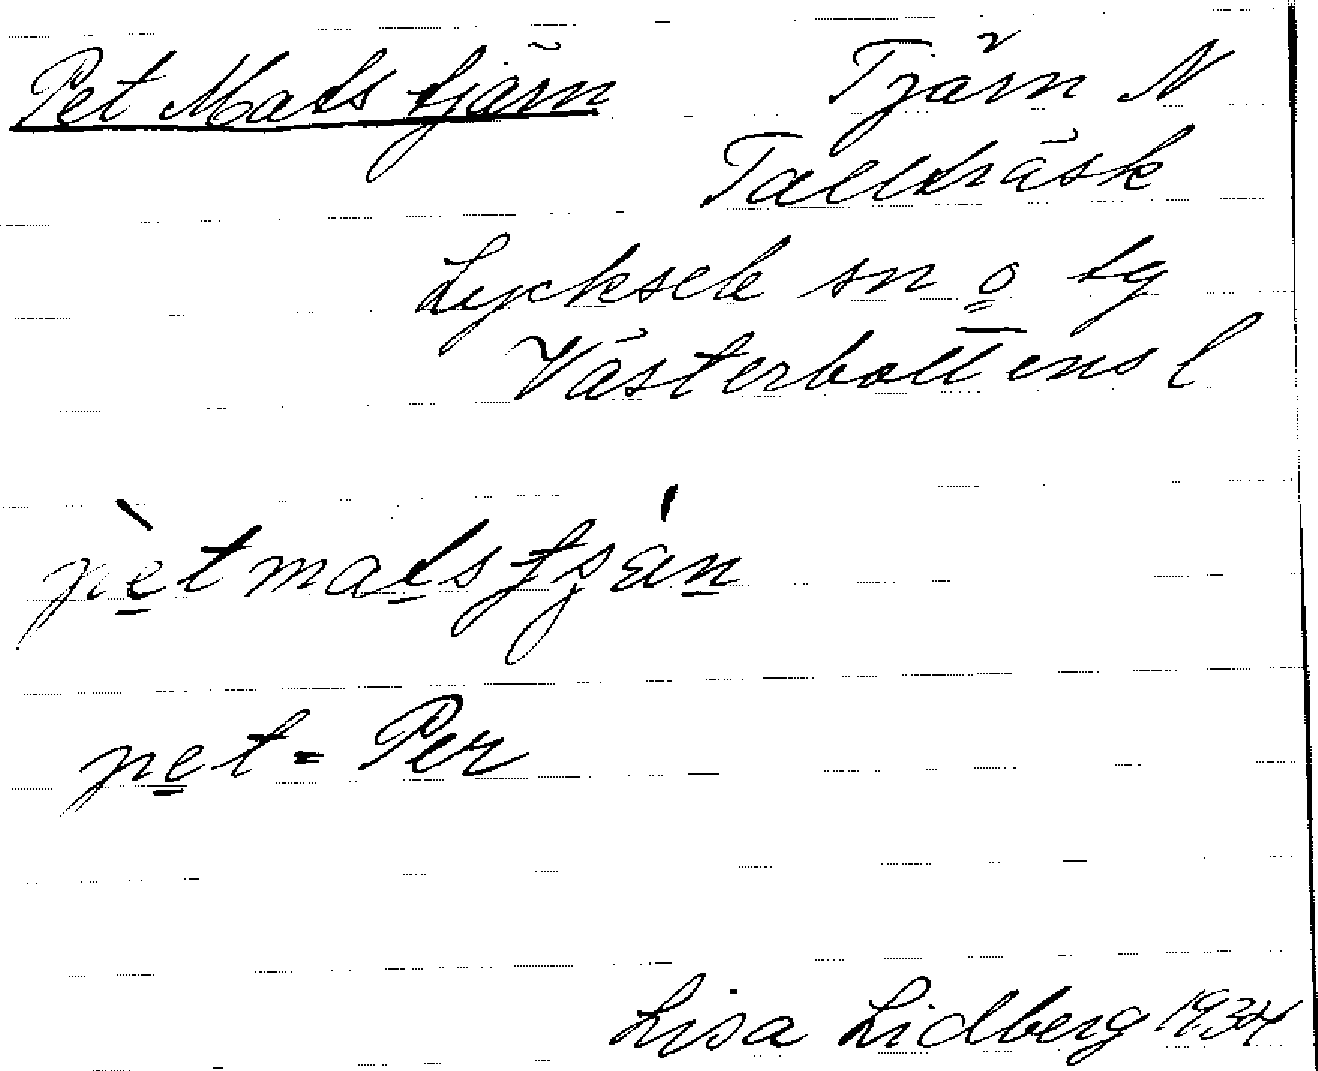 Pet Mats tjärn
Tjärn N
Tallträsk
Lycksele sn o tg
Västerbottens l
pètmats
pet = Per
Lisa Lidberg 1934